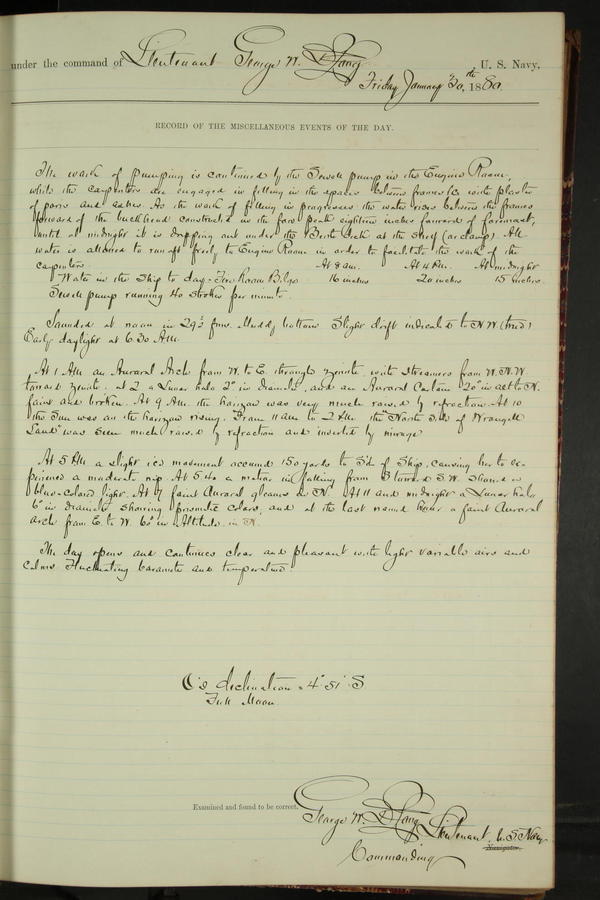 under the command of Lieutenant George W. De Long U. S. Navy,
Friday January 30th, 1880.
RECORD OF THE MISCELLANEOUS EVENTS OF THE DAY.
The work of pumping is continued by the Sewell pump in the Engine Room,
while the carpenters are engaged in filling in the spaces between frames &c with plaster
of paris and ashes. As the work of filling in progresses the water rises between the frames
forward of the bulkhead constructed in the fore peak eighteen inches forward of foremast,
until at midnight it is dropping out under the Berth deck at the strap (or clamp). All
water is allowed to run off freely to Engine Room in order to facilitate the work of the
carpenters. At 8 am. At 4 P.M. At midnight
Water in the ship to day: Fire Room Bilge 16 inches 20 inches 15 inches
Sewell pump running 40 strokes per minute.
Sounded at noon in 29½ fms. Muddy bottom Slight drift indicated to N.W. (true)
Early daylight at 6.30 A.M.
At 1 A.M. an Auroral Arch from W. to E. through zenith, with streamers from W.N.W.
toward zenith. at 2 a Lunar halo 2° in diameter, and an Auroral Curtain 20° in alt to N.
faint and broken. At 9 A.M. the horizon was very much raised by refraction. At 10
the Sun was on the horizon rising. From 11 am to 2 P.M. the "North side of Wrangell
Land" was seen much raised by refraction and inverted by mirage
At 5 P.M. a slight ice movement occurred 150 yards to S'd of Ship, causing her to ex-
perience a moderate nip. At 5.40 a meteor in falling from S toward S.W. showed a
blue-colored light. At 7 faint Auroral gleams in N. At 11 and midnight a Lunar halo
6° in diameter showing prismatic colors, and at the last named hour a faint Auroral
arch from E. to W. 60° in Altitude in N.
The day opens and continues clear and pleasant with light variable airs and
calms. Fluctuating barometer and temperature.
☾'s declination = 4° 51' S
Full Moon
Examined and found to be correct.
George W. De Long Lieutenant, U. S. Navy
Navigator.
Commanding